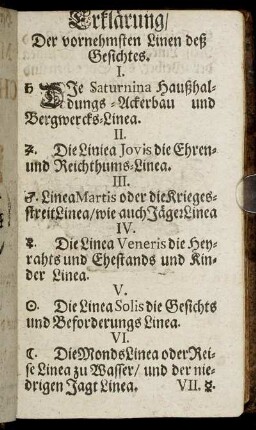 Erklärung/
Der vornehmsten Linen deß
Gesichtes.
I.
♄ DIe Saturnina Haußhal-
dungs-Ackerbau und
Bergwercks-Linea.
II.
♃. Die Liniea Jovis die Ehren-
und Reichthums-Linea.
III.
♂. Linea Martis oder die Krieges-
streit Linea/ wie auch Jäger Linea
IV.
♀. Die Linea Veneris die Hey-
rahts und Ehestands und Kin-
der Linea.
V.
☉. Die Linea Solis die Gesichts
und Beforderungs Linea.
VI.
☾. Die Monds Linea oder Rei-
se Linea zu Wasser/ und der nie-
drigen Jagt Linea. VII. ☿.